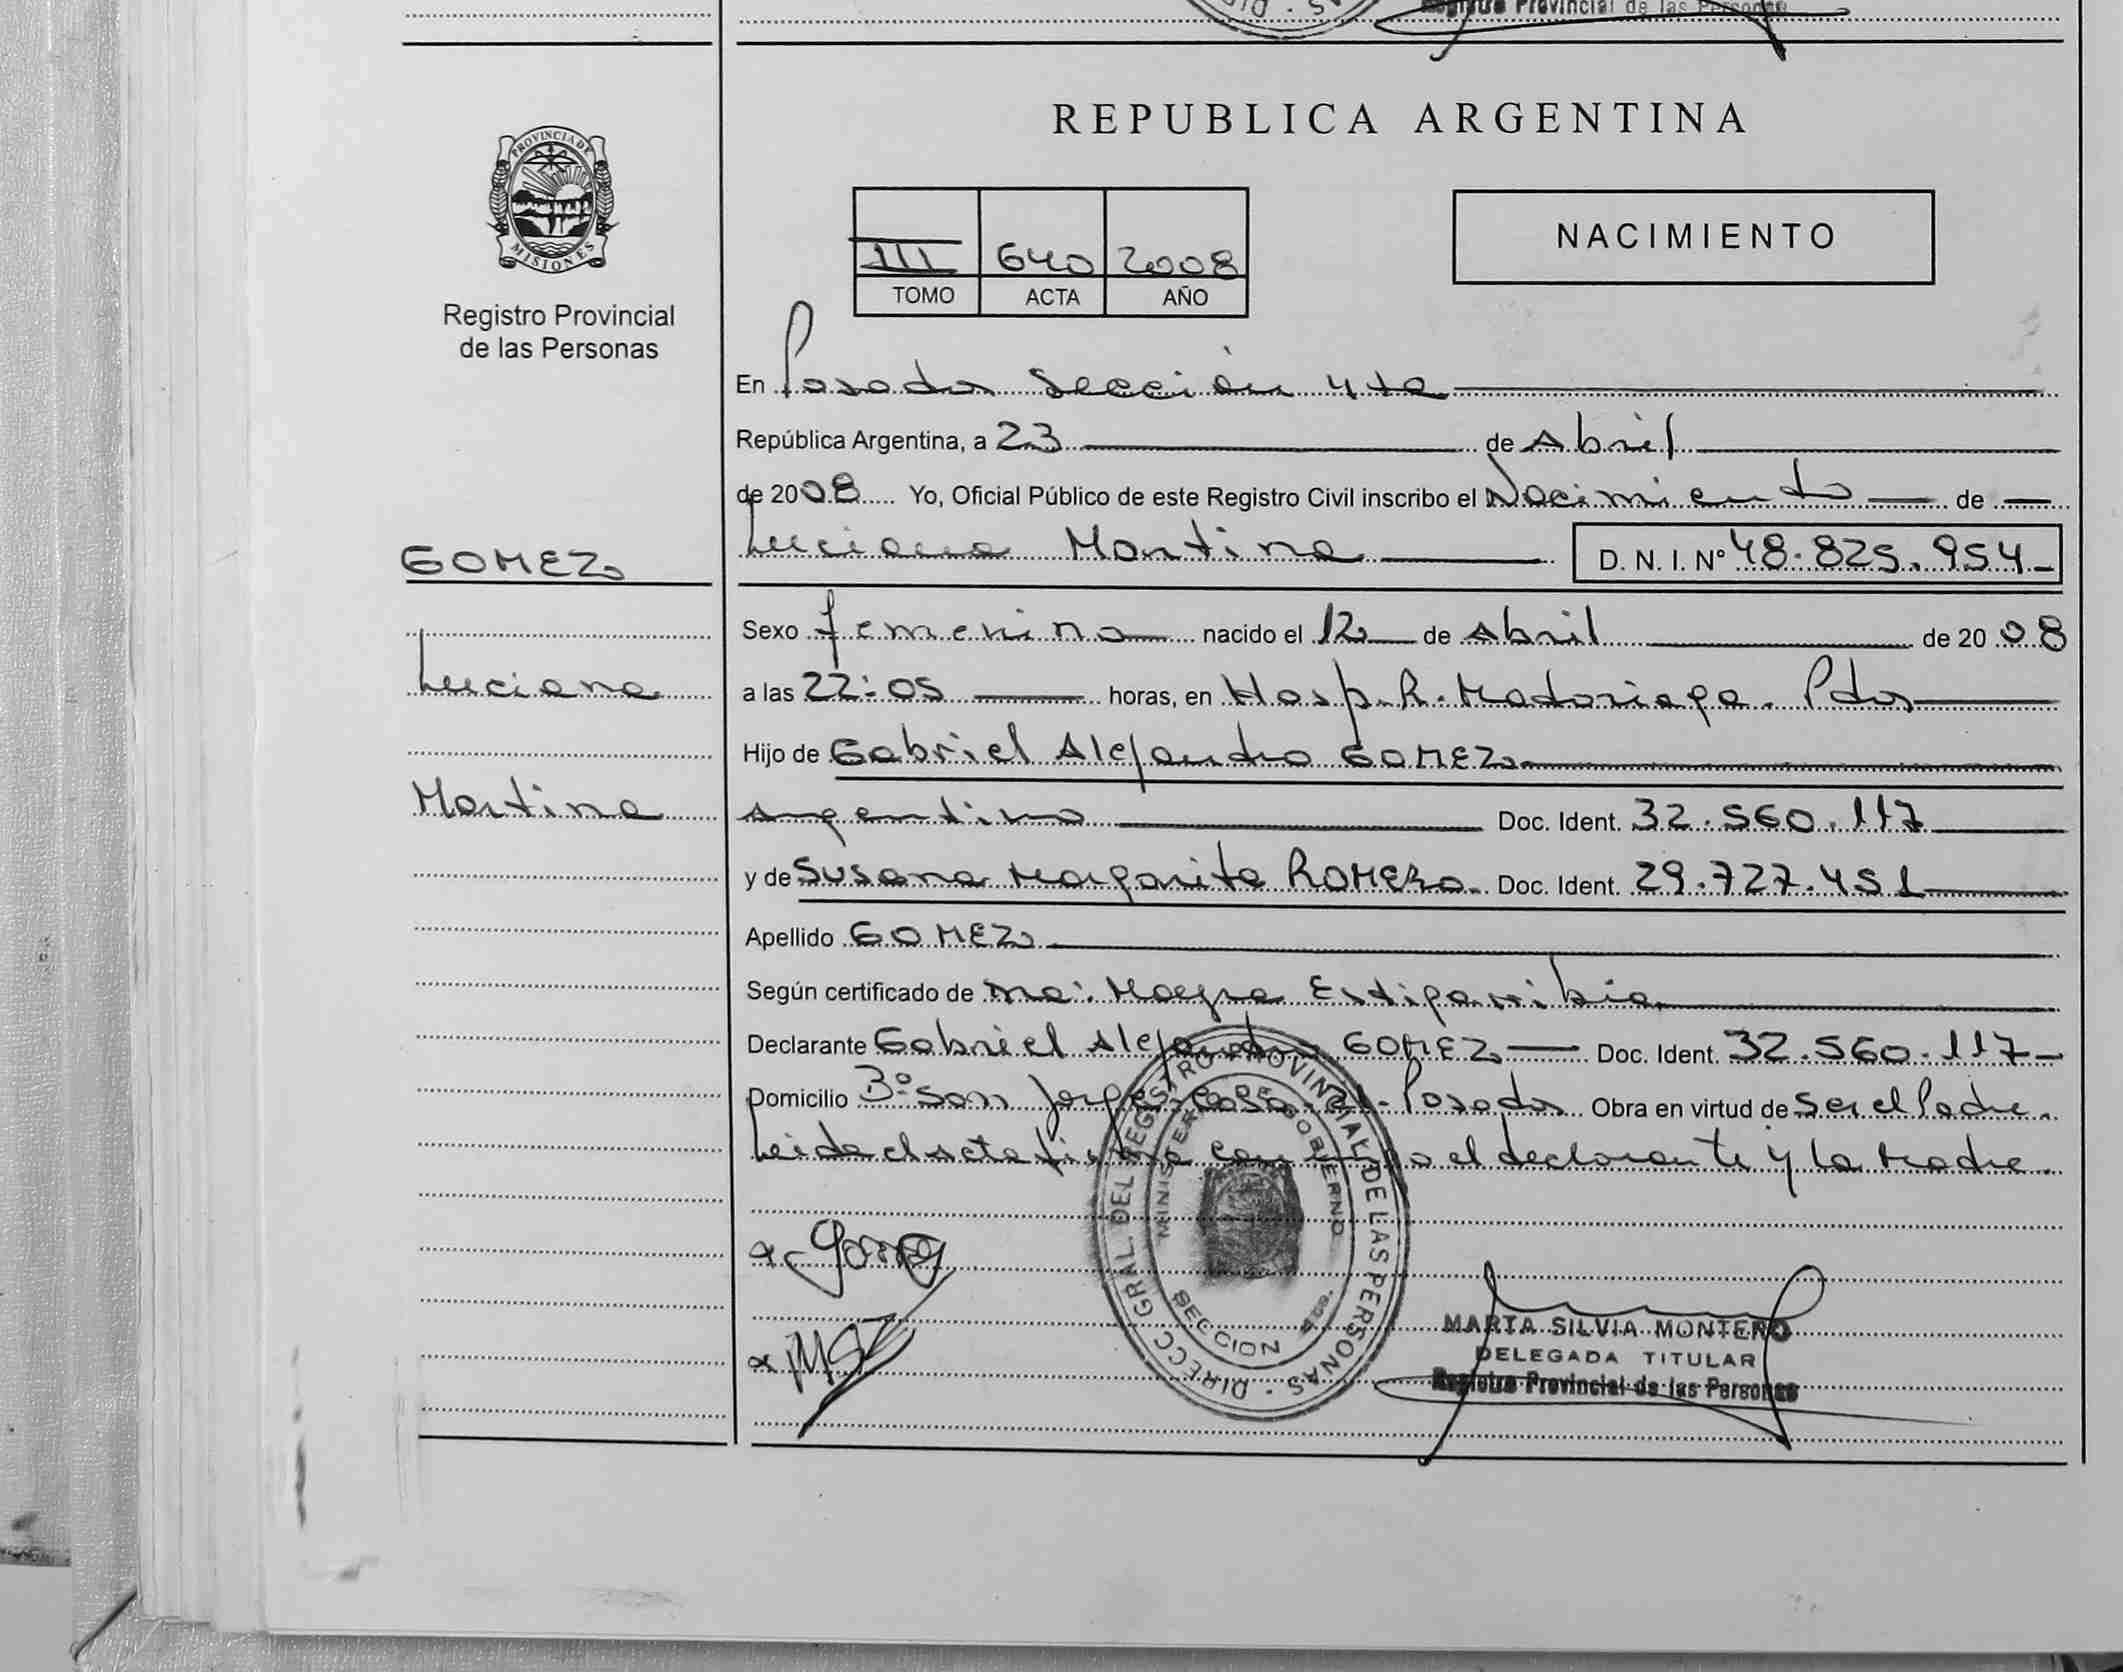 Registro Provincial de las Personas
PROVINCIA DE
MISIONES
Registro Provincial
de las Personas
REPUBLICA ARGENTINA
III 640 2008
TOMO ACTA AÑO
NACIMIENTO
En Posadas Sección 4ta
República Argentina, a 23 de Abril
de 2008 Yo, Oficial Público de este Registro Civil inscribo el Nacimiento de
Luciana Martina D. N. I. Nº 48.825.954
GOMEZ
Luciana
Martina
Sexo femenino nacido el 12 de Abril de 2008
a las 22:05 horas, en Hosp. R. Madariaga. Pdas
Hijo de Gabriel Alejandro GOMEZ
Argentino Doc. Ident. 32.560.117
y de Susana Margarita ROMERO Doc. Ident. 29.727.451
Apellido GOMEZ
Según certificado de
Declarante Gabriel Alejandro GOMEZ Doc. Ident. 32.560.117
Domicilio Bº San Jorge Casa Posadas Obra en virtud de ser el Padre.
Leida el acta firma conmigo el declarante y la Madre.
DIRECC. GRAL. DEL REGISTRO PROVINCIAL DE LAS PERSONAS
MINISTERIO DE GOBIERNO
SECCION 4ta.
MARTA SILVIA MONTERO
DELEGADA TITULAR
Registro Provincial de las Personas